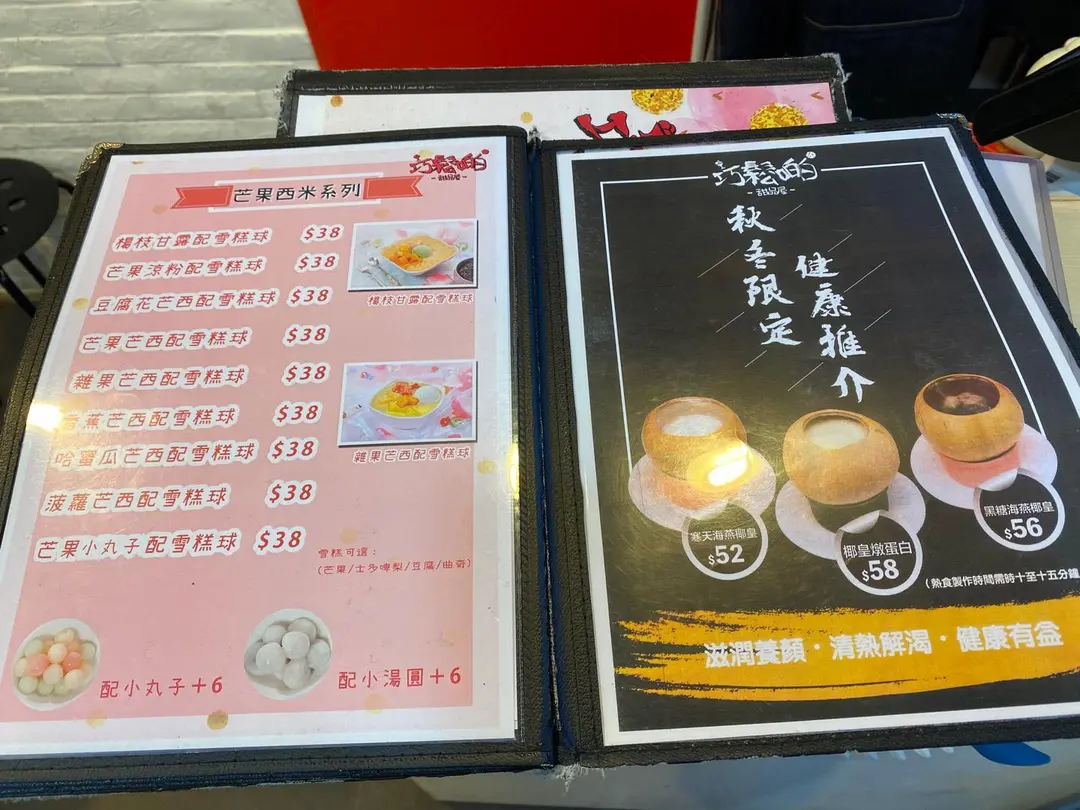 巧鬆啲
- 甜品屋 -
芒果西米系列
楊枝甘露配雪糕球 $38
芒果涼粉配雪糕球 $38
豆腐花芒西配雪糕球 $38
芒果芒西配雪糕球 $38
雜果芒西配雪糕球 $38
香蕉芒西配雪糕球 $38
哈蜜瓜芒西配雪糕球 $38
菠蘿芒西配雪糕球 $38
芒果小丸子配雪糕球 $38
楊枝甘露配雪糕球
雜果芒西配雪糕球
雪糕可選：
(芒果/士多啤梨/豆腐/曲奇)
配小丸子+6
配小湯圓+6
巧鬆啲
- 甜品屋 -
秋冬限定
健康推介
寒天海燕椰皇
$52
椰皇燉蛋白
$58
黑糖海燕椰皇
$56
(熱食製作時間需時十至十五分鐘
滋潤養顏·清熱解渴·健康有益